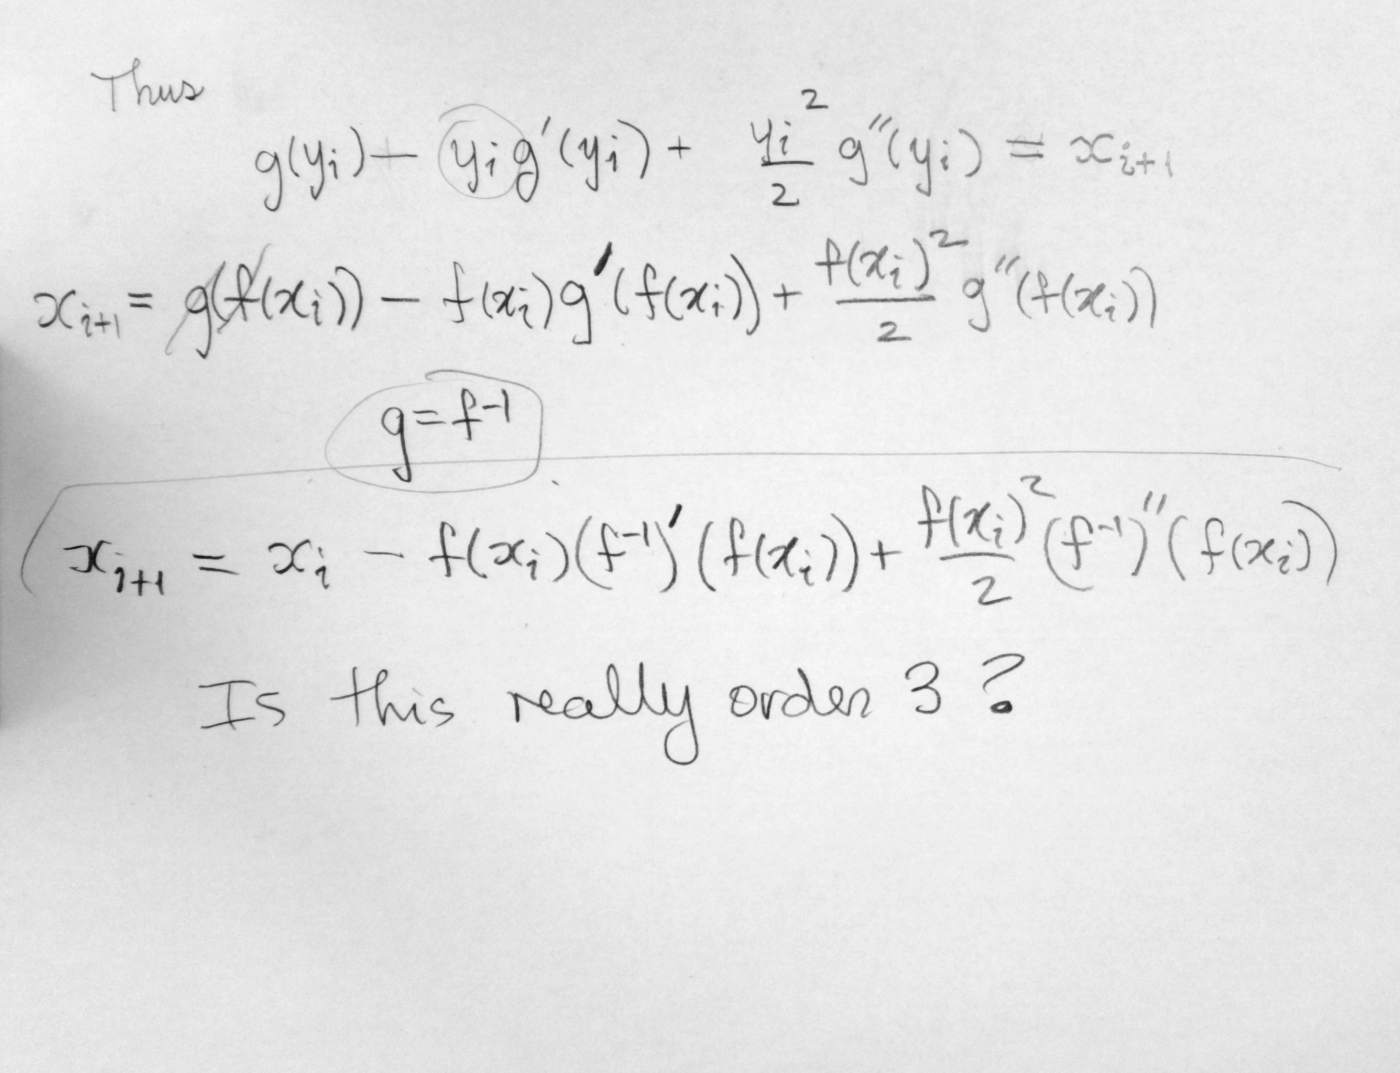 Thus
g(yᵢ) − yᵢg′(yᵢ) + yᵢ²/2 g″(yᵢ) = xᵢ₊₁
xᵢ₊₁ = g(f(xᵢ)) − f(xᵢ)g′(f(xᵢ)) + f(xᵢ)²/2 g″(f(xᵢ))
g=f⁻¹
xᵢ₊₁ = xᵢ − f(xᵢ)(f⁻¹)′(f(xᵢ)) + f(xᵢ)²/2 (f⁻¹)″(f(xᵢ))
Is this really order 3?